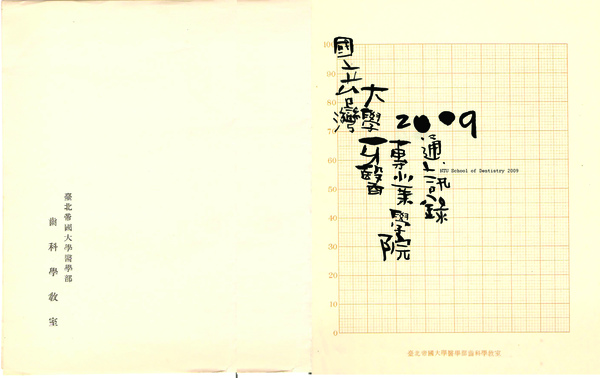 臺北帝國大學醫學部
齒科學教室
國立台灣
大學
牙醫
專業學院
2009
通訊錄
NTU School of Dentistry 2009
100
90
80
70
60
50
40
30
20
10
0
臺北帝國大學醫學部齒科學教室